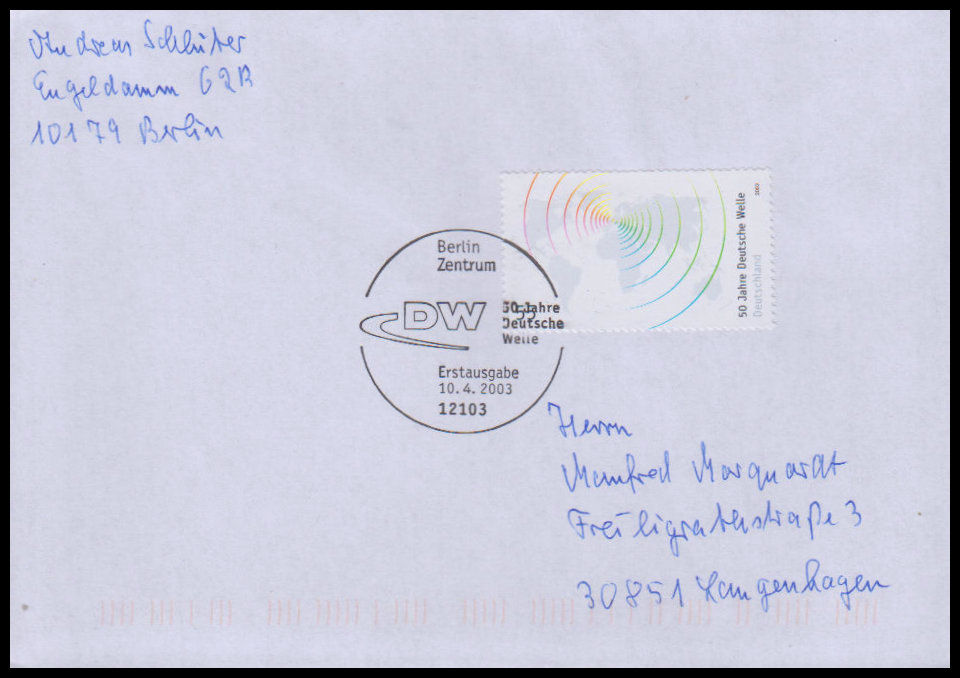 Andreas Schlüter
Engeldamm 62B
10179 Berlin
50 Jahre Deutsche Welle
Deutschland
2003
55
Berlin
Zentrum
DW
50 Jahre
Deutsche
Welle
Erstausgabe
10.4.2003
12103
Herrn
Manfred Marquardt
Freiligrathstraße 3
30851 Langenhagen